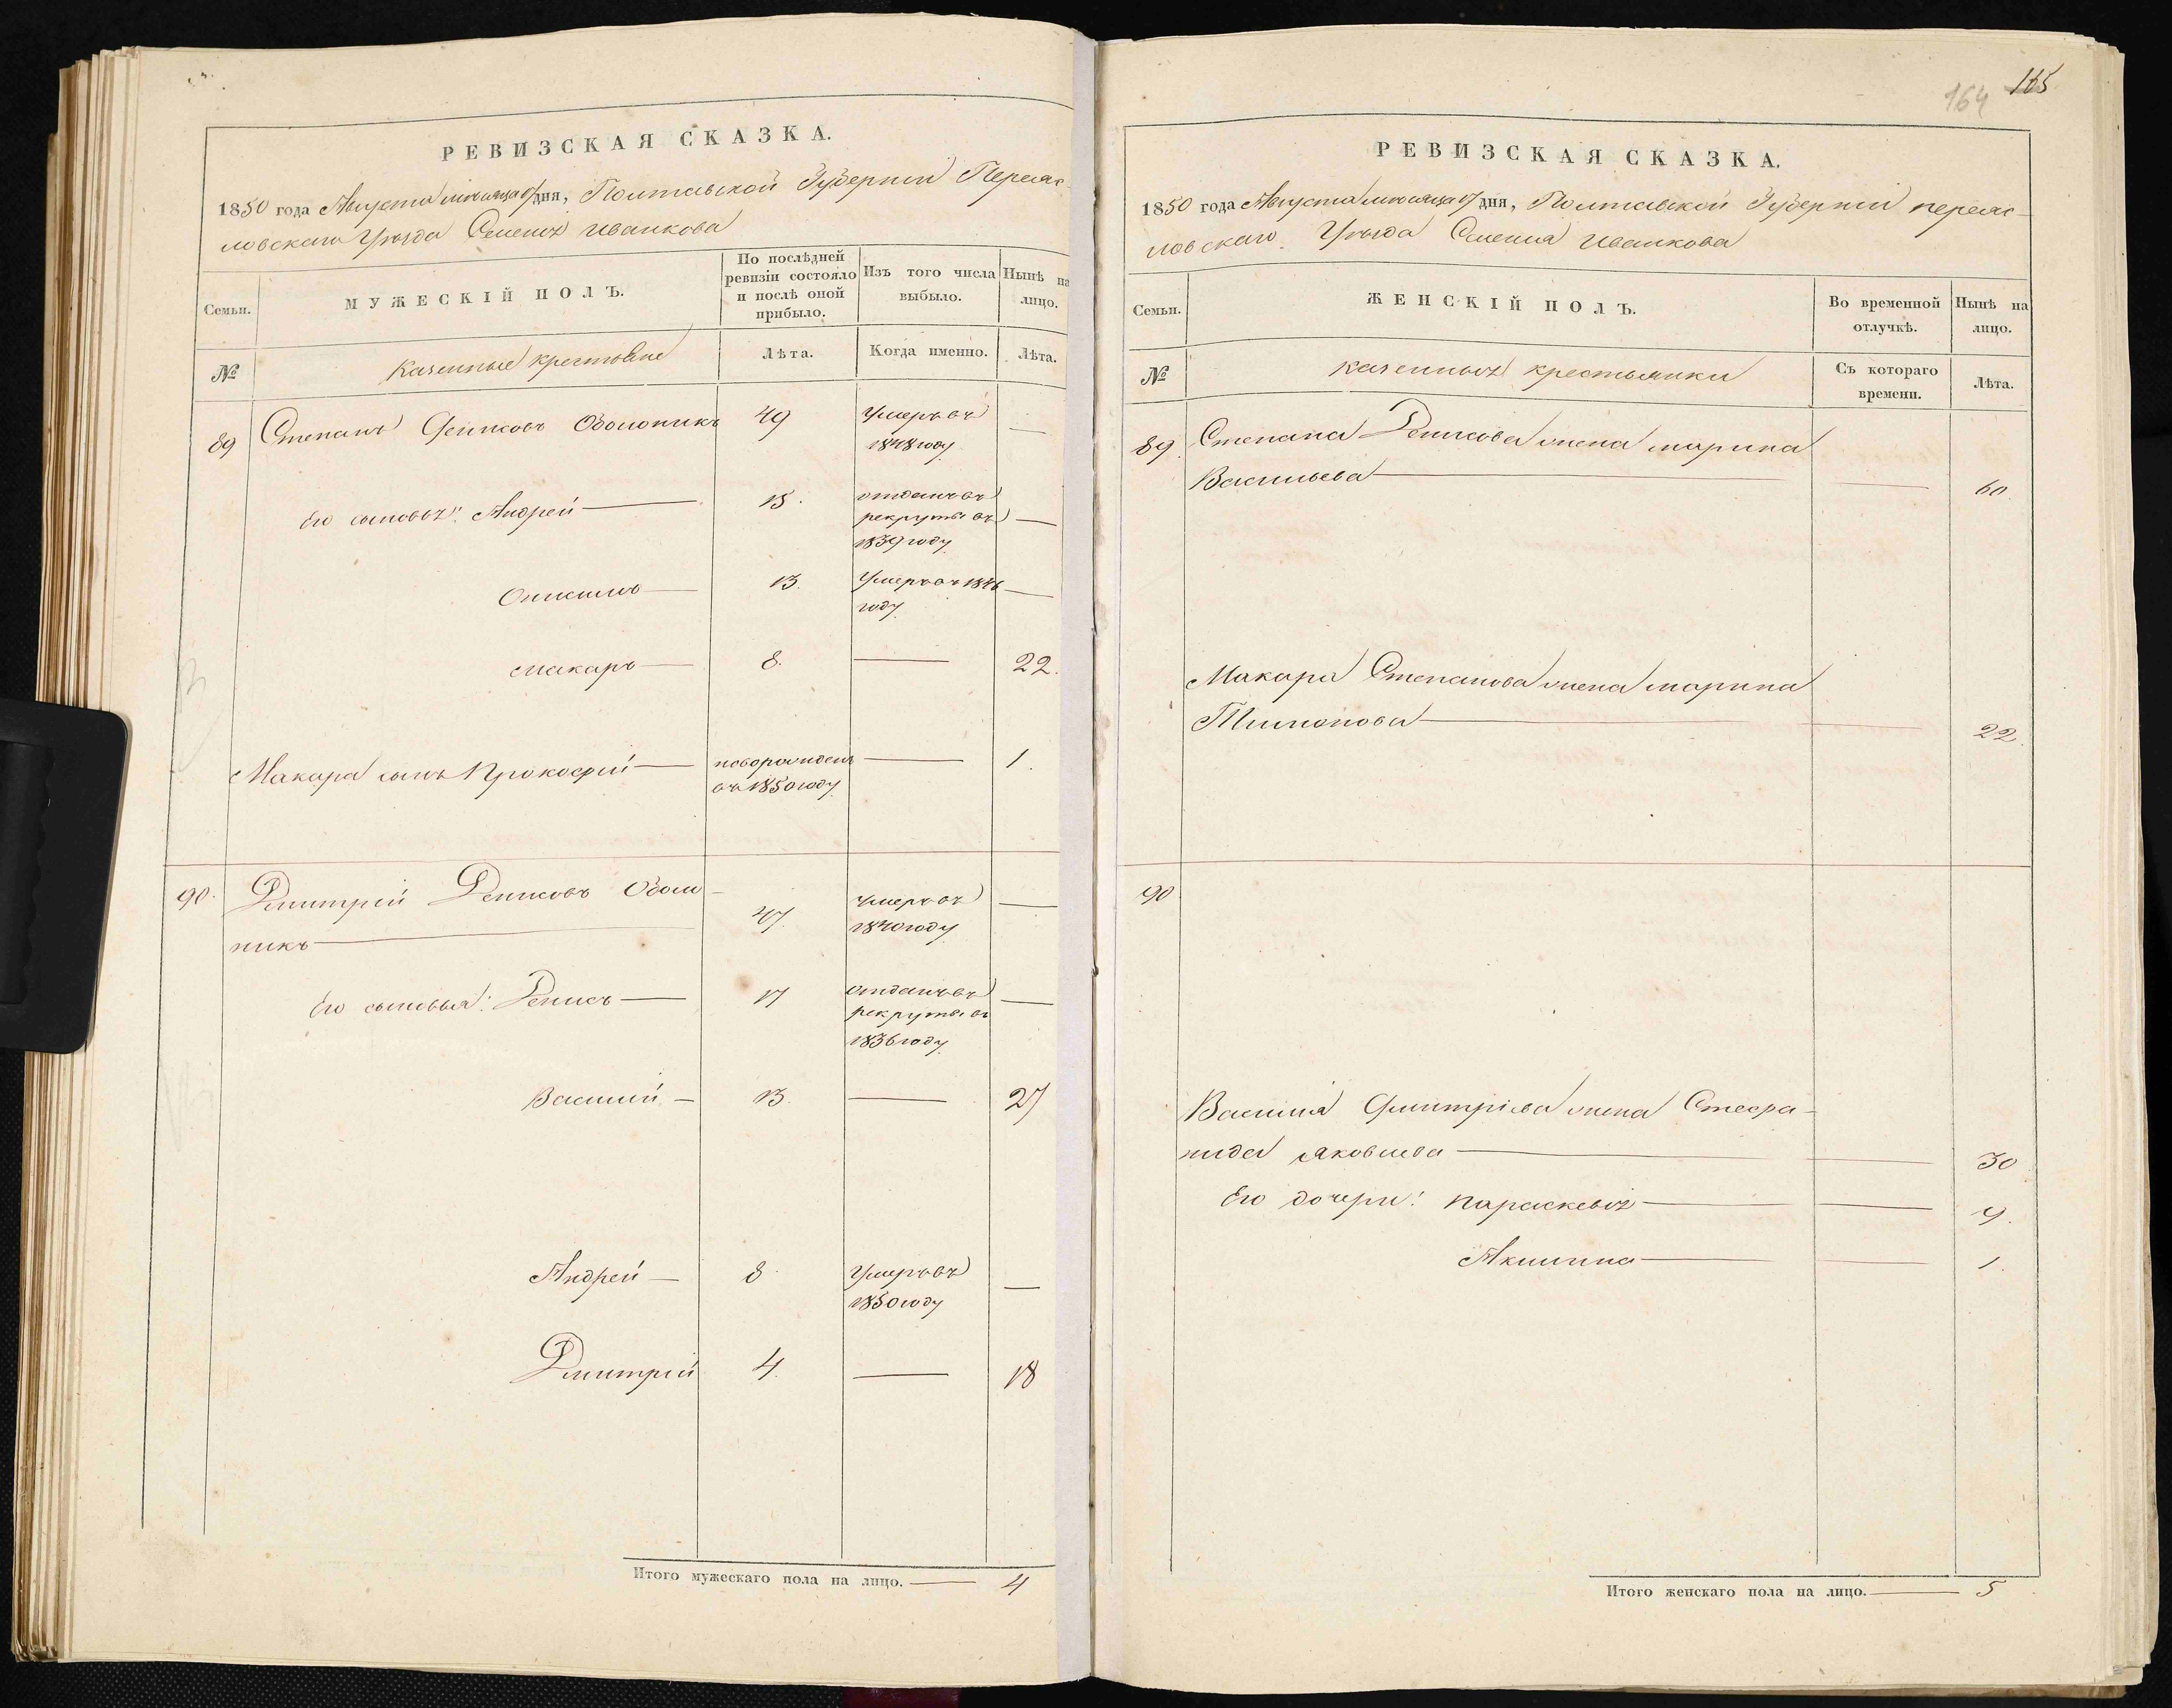 РЕВИЗСКАЯ СКАЗКА.
1850 года Августа месяца дня, Полтавской Губернии Переяс-
ловскаго Уезда Селенія Иванкова
Семьи.
МУЖЕСКІЙ ПОЛЪ.
По послѣдней ревизіи состояло и послѣ оной прибыло.
Изъ того числа выбыло.
Нынѣ на лицо.
№
Казенные крестьяне
Лѣта.
Когда именно.
Лѣта.
89 Степанъ Денисовъ Оболоникъ 49 Умеръ въ
1848 году —
Его сыновья: Андрей — 15. отданъ въ
рекруты въ —
1839 году
Онисимъ — 13. Умеръ въ 1846 —
году
Макаръ — 8. — 22.
Макара сынъ Прокофій — новорожденъ — 1.
въ 1850 году
90. Дмитрій Денисовъ Оболо-
никъ — 47. умеръ въ —
1840 году
Его сыновья: Денисъ — 17 отданъ въ —
рекруты въ
1836 году
Василий — 13. — 27
Андрей — 8. Умеръ въ —
1850 году
Дмитрій 4. — 18
Итого мужескаго пола на лицо. — 4
164 165
РЕВИЗСКАЯ СКАЗКА.
1850 года Августа месяца дня, Полтавской Губерніи Переяс-
ловскаго Уезда Селенія Иванкова
Семьи.
ЖЕНСКІЙ ПОЛЪ.
Во временной отлучкѣ.
Нынѣ на лицо.
№
Казенные крестьянки
Съ котораго времени.
Лѣта.
89. Степана Денисова жена Марина
Васильева — — 60.
Макара Степанова жена Марина
Тимонова — — 22.
90
Василія Дмитріева жена Стефа-
нида Яковлева — — 30
Его дочери: Параскевія — — 9.
Акилина — — 1.
Итого женскаго пола на лицо. — 5